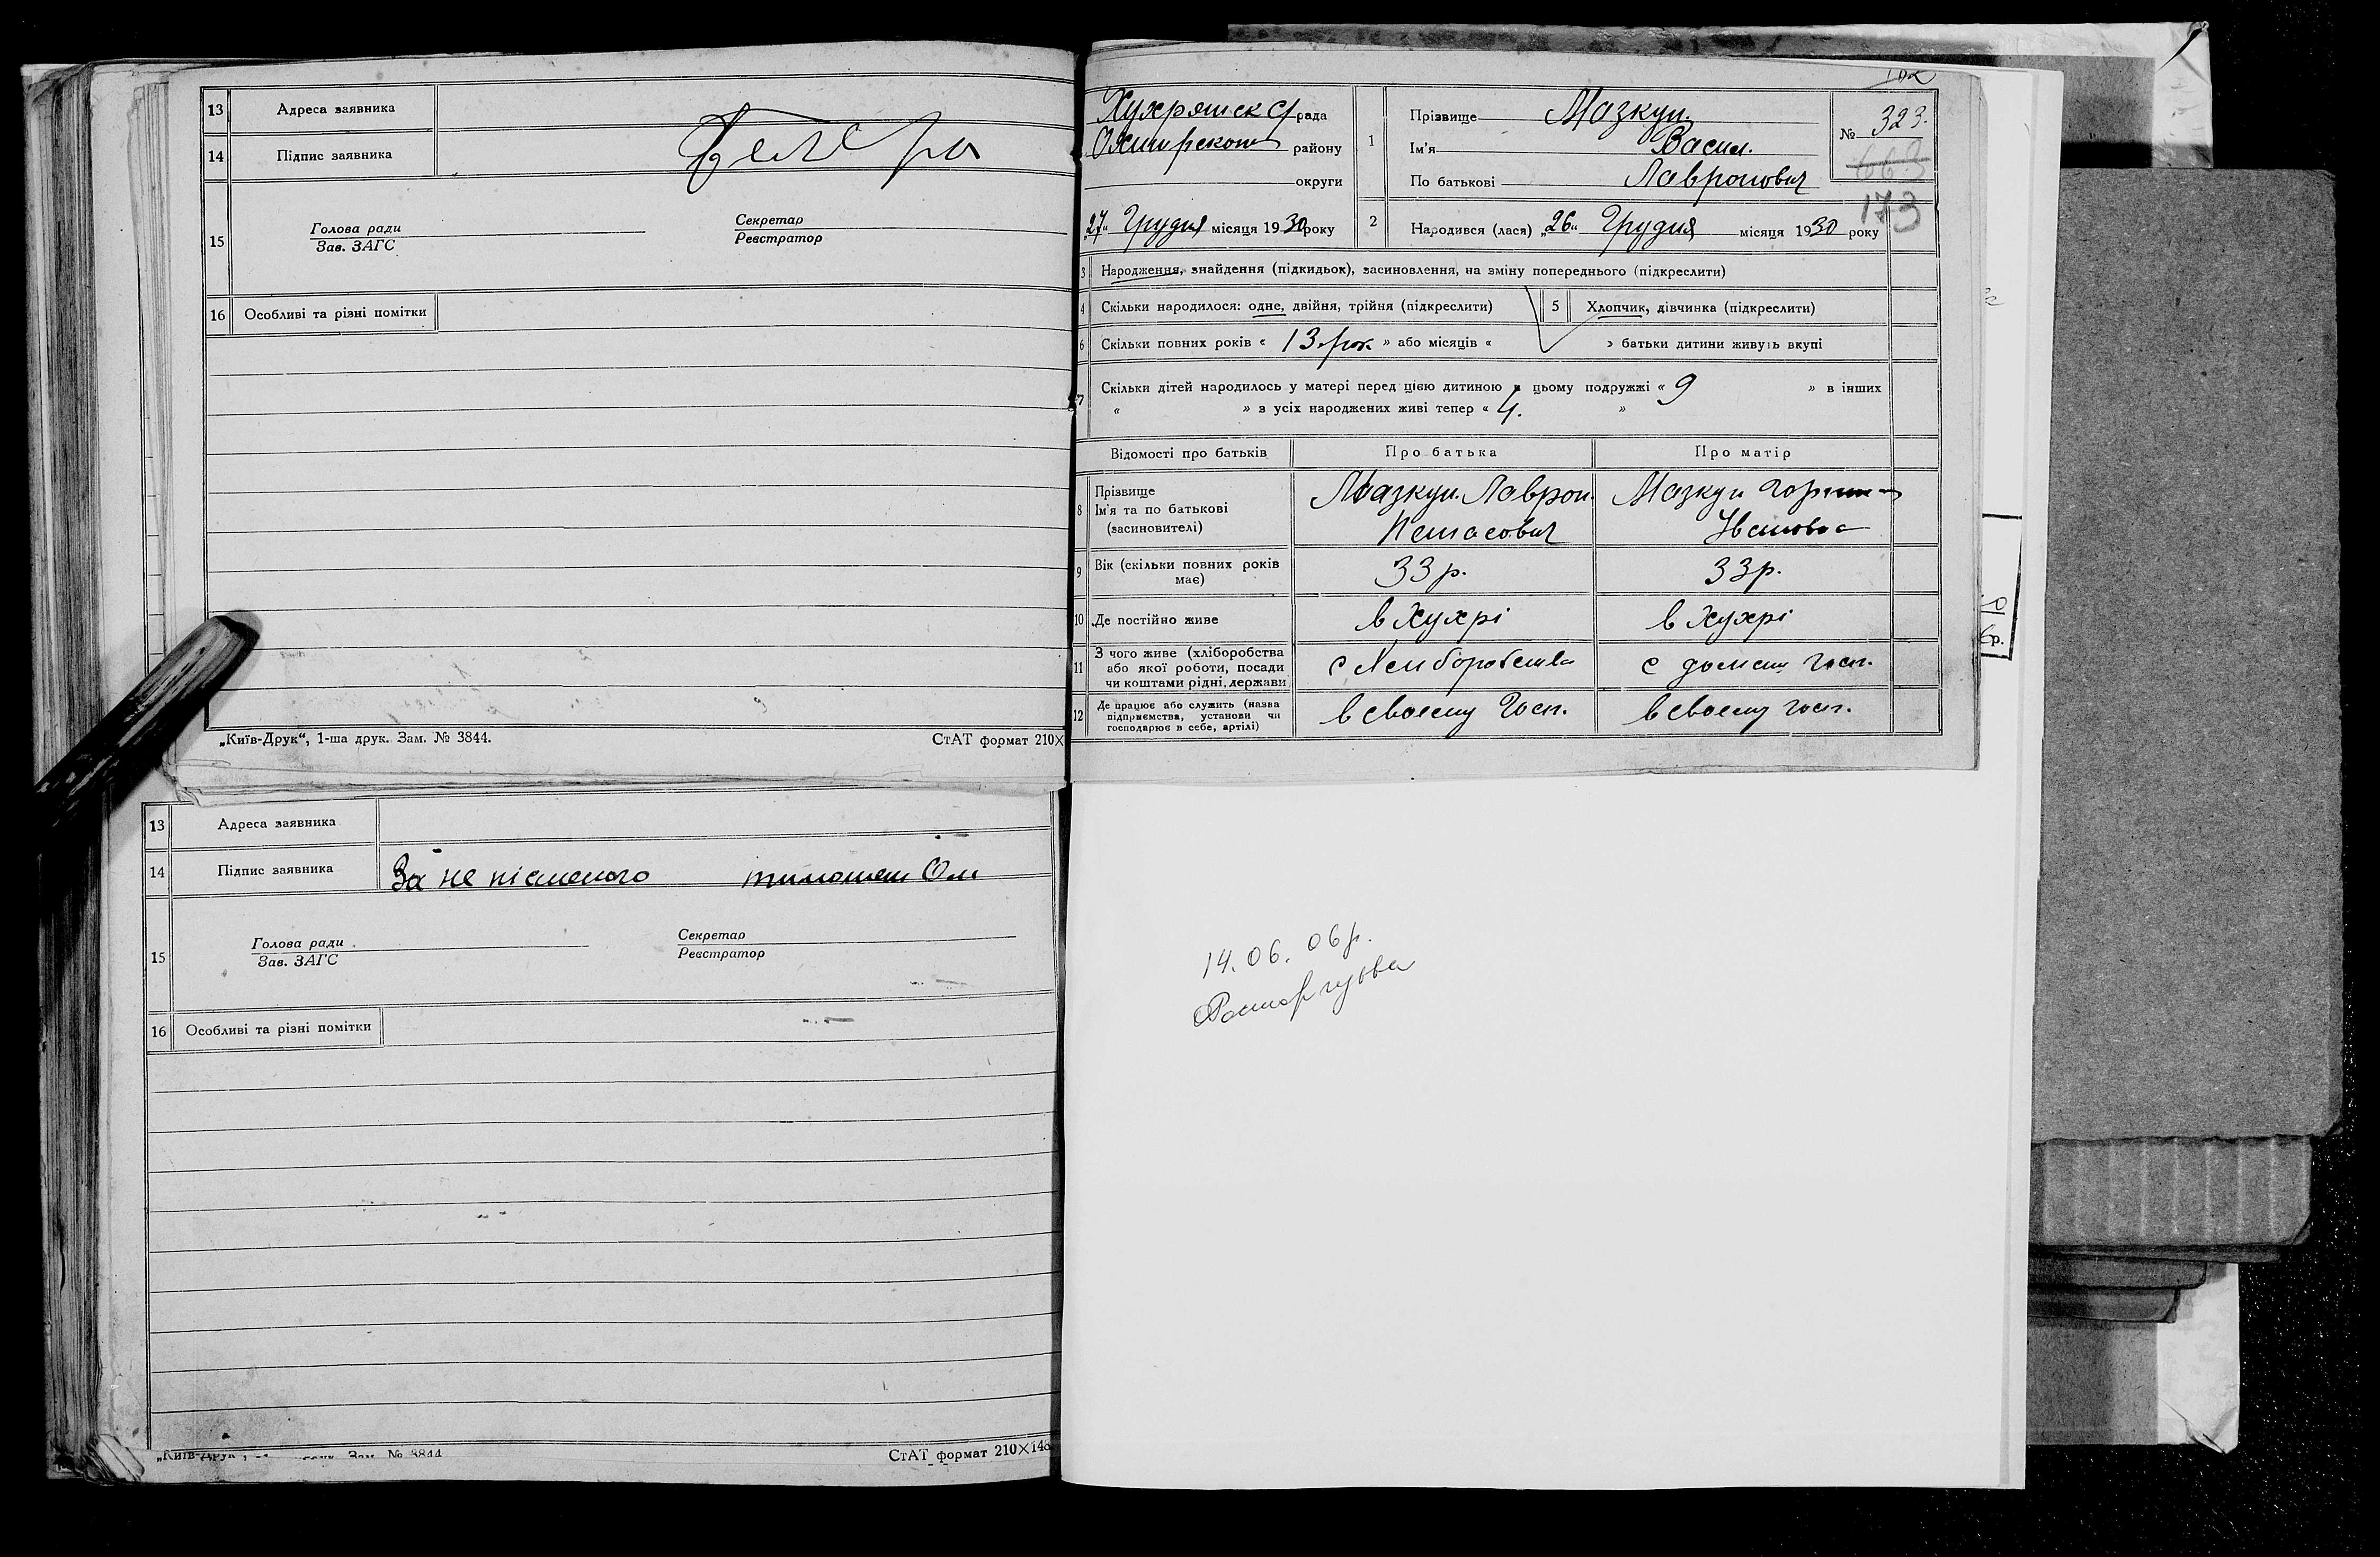 13 Адреса заявника
14 Підпис заявника
15 Голова ради Секретар
Зав. ЗАГС Реєстратор
16 Особливі та різні помітки
„Київ-Друк“, 1-ша друк. Зам. № 3844. СтАТ формат 210×
13 Адреса заявника
14 Підпис заявника За не пісменого
15 Голова ради Секретар
Зав. ЗАГС Реєстратор
16 Особливі та різні помітки
Зам. № 3844 СтАТ формат 210×148
рада
району
округи
„27“ Грудня місяця 1930 року
1 Прізвище Мазкун.
Ім'я Васил.
По батькові Лавронович
№ 323.
663
173
2 Народився (лася) „26“ Грудня місяця 1930 року
3 Народження, знайдення (підкидьок), засиновлення, на зміну попереднього (підкреслити)
4 Скільки народилося: одне, двійня, трійня (підкреслити) 5 Хлопчик, дівчинка (підкреслити)
6 Скільки повних років « 13 рок » або місяців « » батьки дитини живуть вкупі
7 Скільки дітей народилось у матері перед цією дитиною в цьому подружжі « 9 » в інших
« » з усіх народжених живі тепер « 4. »
Відомості про батьків Про батька Про матір
8 Прізвище Мазкун Лаврон. Мазкун
Ім'я та по батькові
(засиновителі) Івановна
9 Вік (скільки повних років має) 33 р. 33 р.
10 Де постійно живе в Хухрі в Хухрі
11 З чого живе (хліборобства
або якої роботи, посади
чи коштами рідні, держави с домаш. госп.
12 Де працює або служить (назва
підприємства, установи чи
господарює в себе, артілі) в своему госп. в своему госп.
14.06.06р.